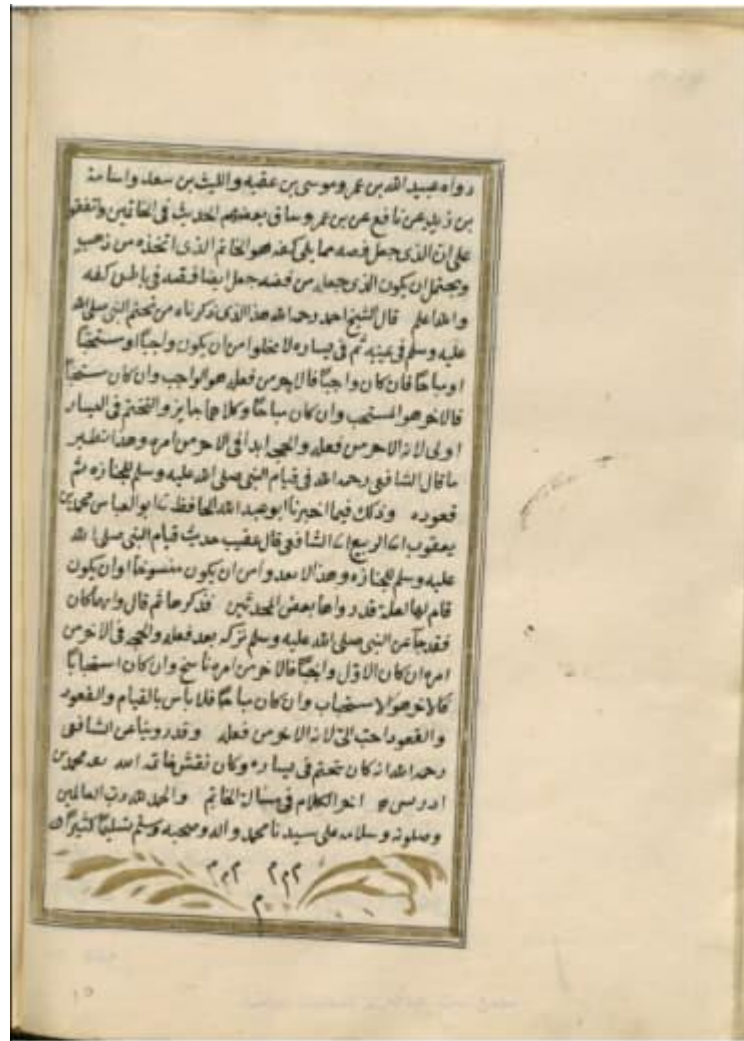 رواه عبيد الله بن عمر وموسى بن عقبه والليث بن سعد واسامة
بن زيد عن نافع عن بن عمر وساق بعضهم الحديث في الخاتمين واتفقوا
على ان الذى جعل فصه مما يلى كفه هو الخاتم الذى اتخذه من ذهب
ويحتمل ان يكون الذى جعله من فضه جعل ايضا فصه في باطن كفه
والله اعلم قال الشيخ احمد رحمه الله هذا الذى ذكرناه من تختم النبى صلى الله
عليه وسلم في يمينه ثم في يساره لا يخلوا من ان يكون واجبًا او مستحبًا
او مباحًا فان كان واجبًا فالاخر من فعله هو الواجب وان كان مستحبًا
فالاخر هو المستحب وان كان مباحًا وكلاهما جايز والتختم في اليسار
اولى لانه الاخر من فعله والحجه ابدا في الاخر من امره وهذا نظير
ما قال الشافعى رحمه الله في قيام النبى صلى الله عليه وسلم للجنازه ثم
قعوده وذلك فيما اخبرنا ابو عبد الله الحافظ ثنا ابو العباس محمد بن
يعقوب انا الربيع انا الشافعى قال عقيب حديث قيام النبى صلى الله
عليه وسلم للجنازه وهذا لا يعدوا من ان يكون منسوخًا او ان يكون
قام لها لعلة قد رواها بعض المحدثين فذكرها ثم قال وايهما كان
فقد جآ عن النبى صلى الله عليه وسلم تركه بعد فعله والحجه في الاخر من
امره ان كان الاول واجبًا فالاخر من امره ناسخ وان كان استحبابًا
فالاخر هو الاستحباب وان كان مباحًا فلا باس بالقيام والقعود
والقعود احب الىّ لانه الاخر من فعله وقد روينا عن الشافعى
رحمه الله انه كان يتختم في يساره وكان نقش خاتمه الله محمد بن
ادريس اخر الكلام في مسالة الخاتم والحمد لله رب العالمين
وصلوته وسلامه على سيدنا محمد واله وصحبه وسلم تسليمًا كثيرًا
م م م م م م
م